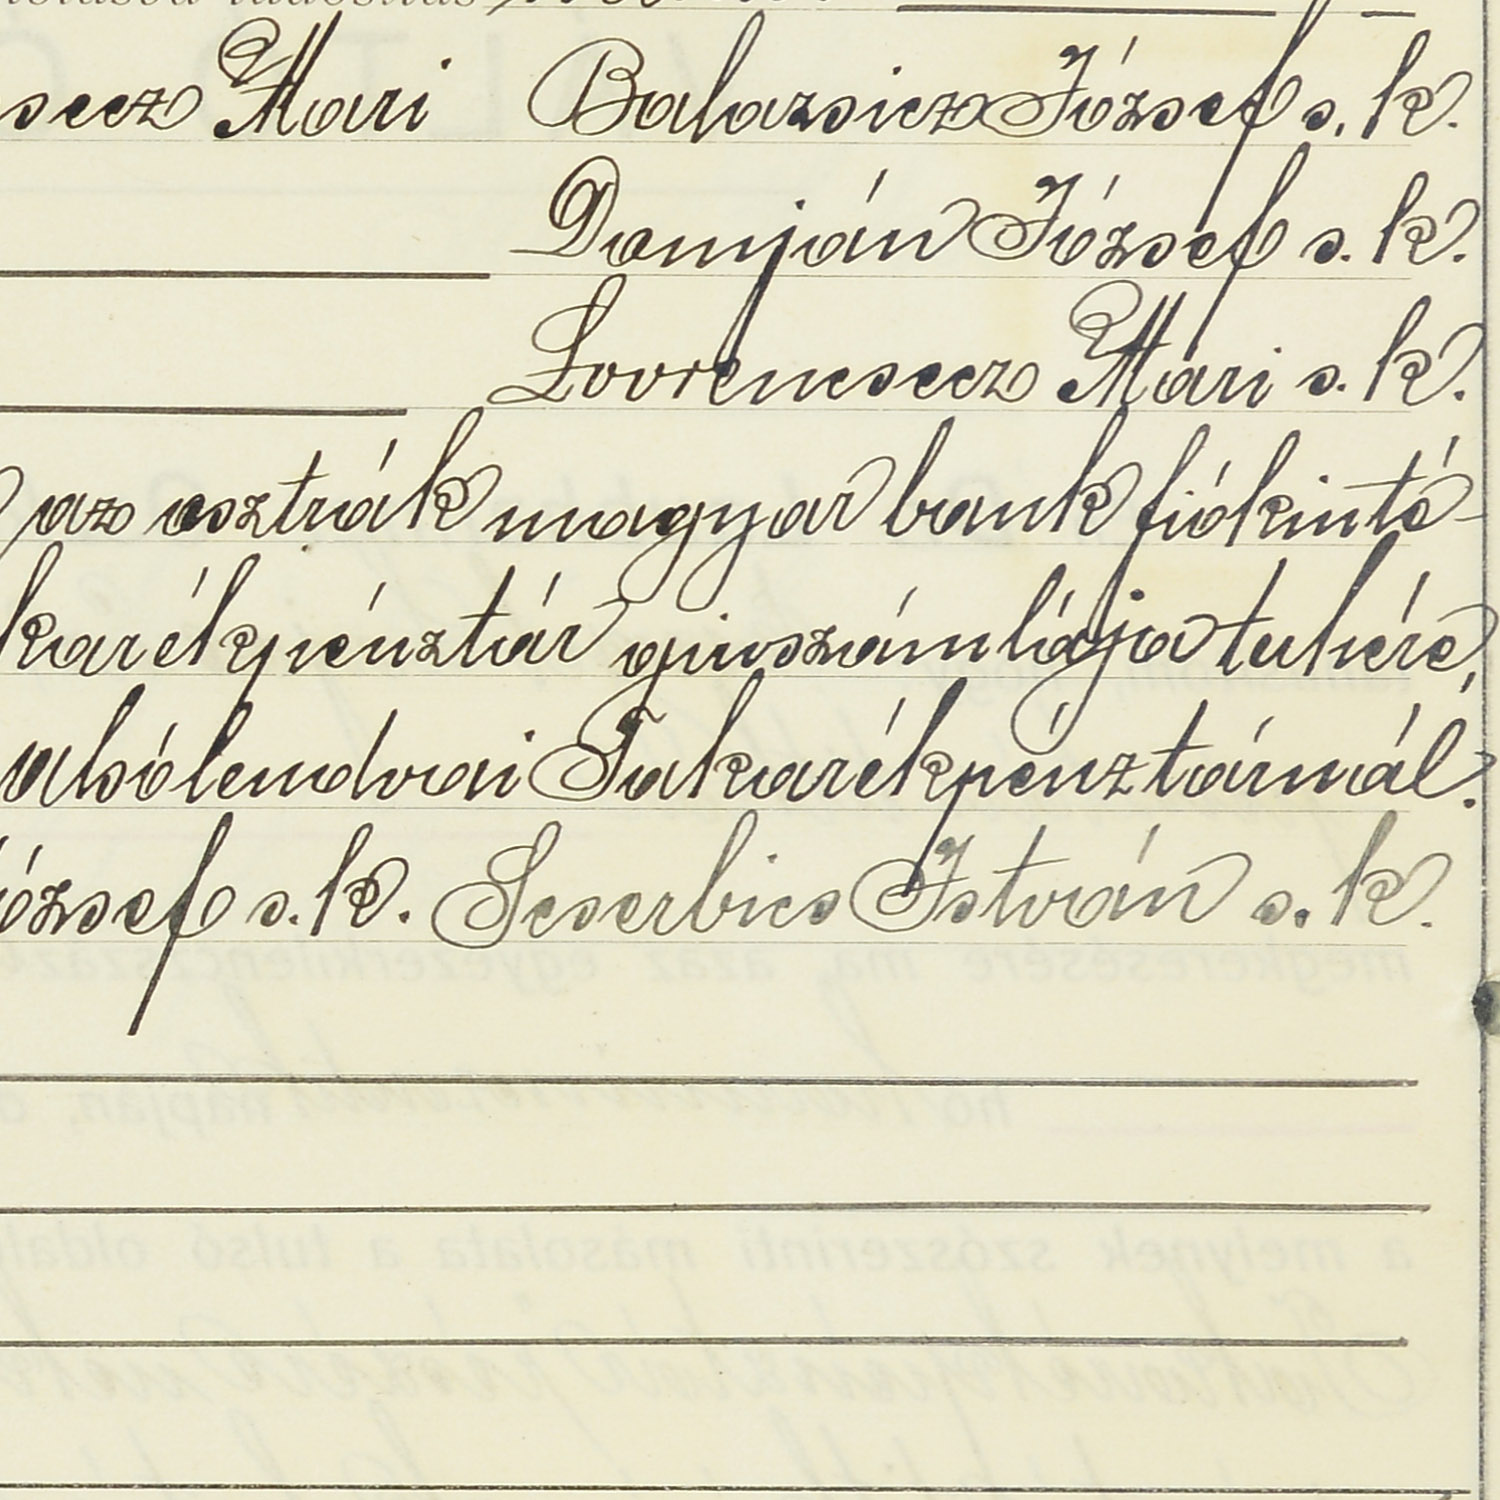 secz Mari Balazsicz József s. k.
Domján József s. k.
Lovrencsecz Mari s. k.
az osztrák magyar bank fiókinté-
karékpénztár giroszámlája terhére,
alsólendvai Takarékpénztárnál.
József s. k. Scserbics István s. k.